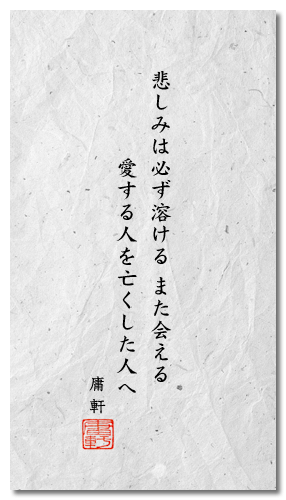 悲しみは必ず溶ける また会える
愛する人を亡くした人へ
庸軒